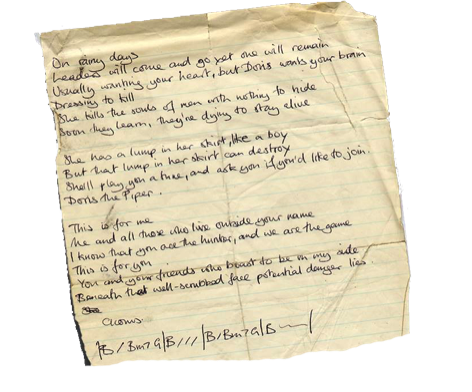 On rainy days
Leaders will come and go yet one will remain
Usually wanting your heart, but Doris wants your brain
Dressing to kill
She kills the souls of men with nothing to hide
Soon they learn, they're dying to stay alive
She has a lump in her skirt, like a boy
But that lump in her skirt can destroy
She'll play you a tune, and ask you if you'd like to join.
Doris the Piper.
This is for me
Me and all those who live outside your name
I know that you are the hunter, and we are the game
This is for you.
You and your friends who boast to be on my side
Beneath that well-scrubbed face potential danger lies.
Chorus.
|B / Bm7 G|B / / /|B / Bm7 G|B